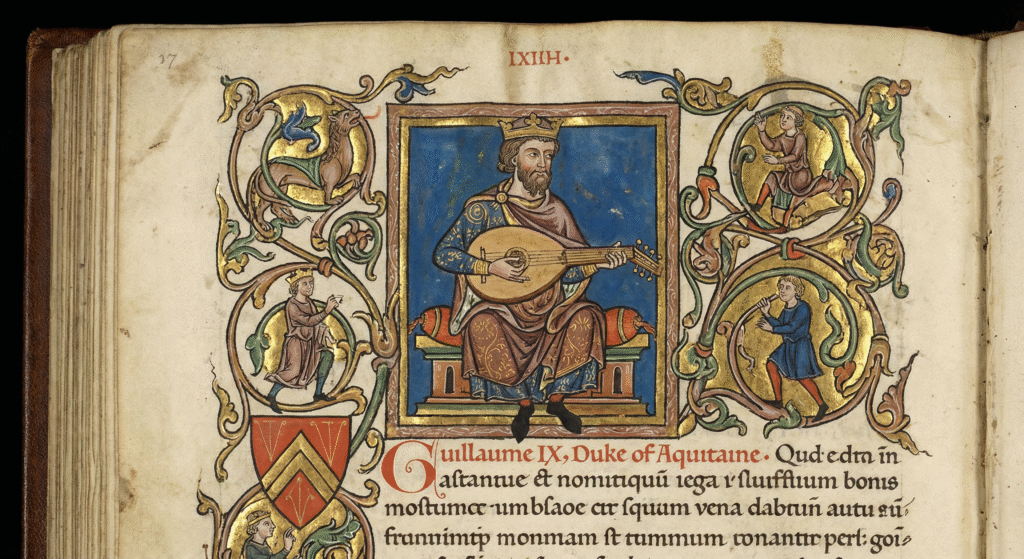 37
IXIIH·
Guillaume IX, Duke of Aquitaine · Qud·edta īn
astantue et nomitiquū iega ı·sluıfftıum bonıs
mostumce·umblaoe cıt ſquum vena dabtuñ autu
frunnimtp monmam ſt tummum tonantır perl: goī⸗